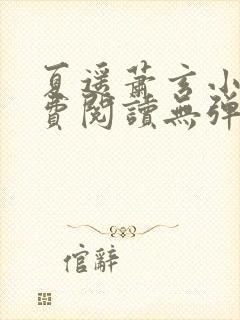 夏遥蕭玄小
費閱讀無彈
倌辭